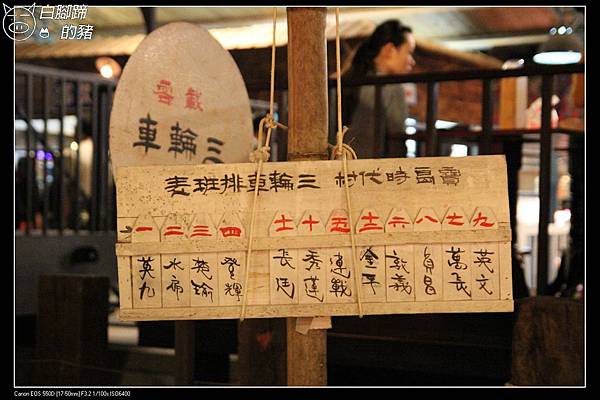 白腳蹄
的豬
載客
三輪車
寶島時代村 三輪車排班表
九 七 八 六 十二 五 十 十一 四 三 二 一
英文 萬長 貞昌 敦義 金平 連戰 秀蓮 登輝 水扁 英九
Canon EOS 550D [17-50mm] F3.2 1/100s ISO6400